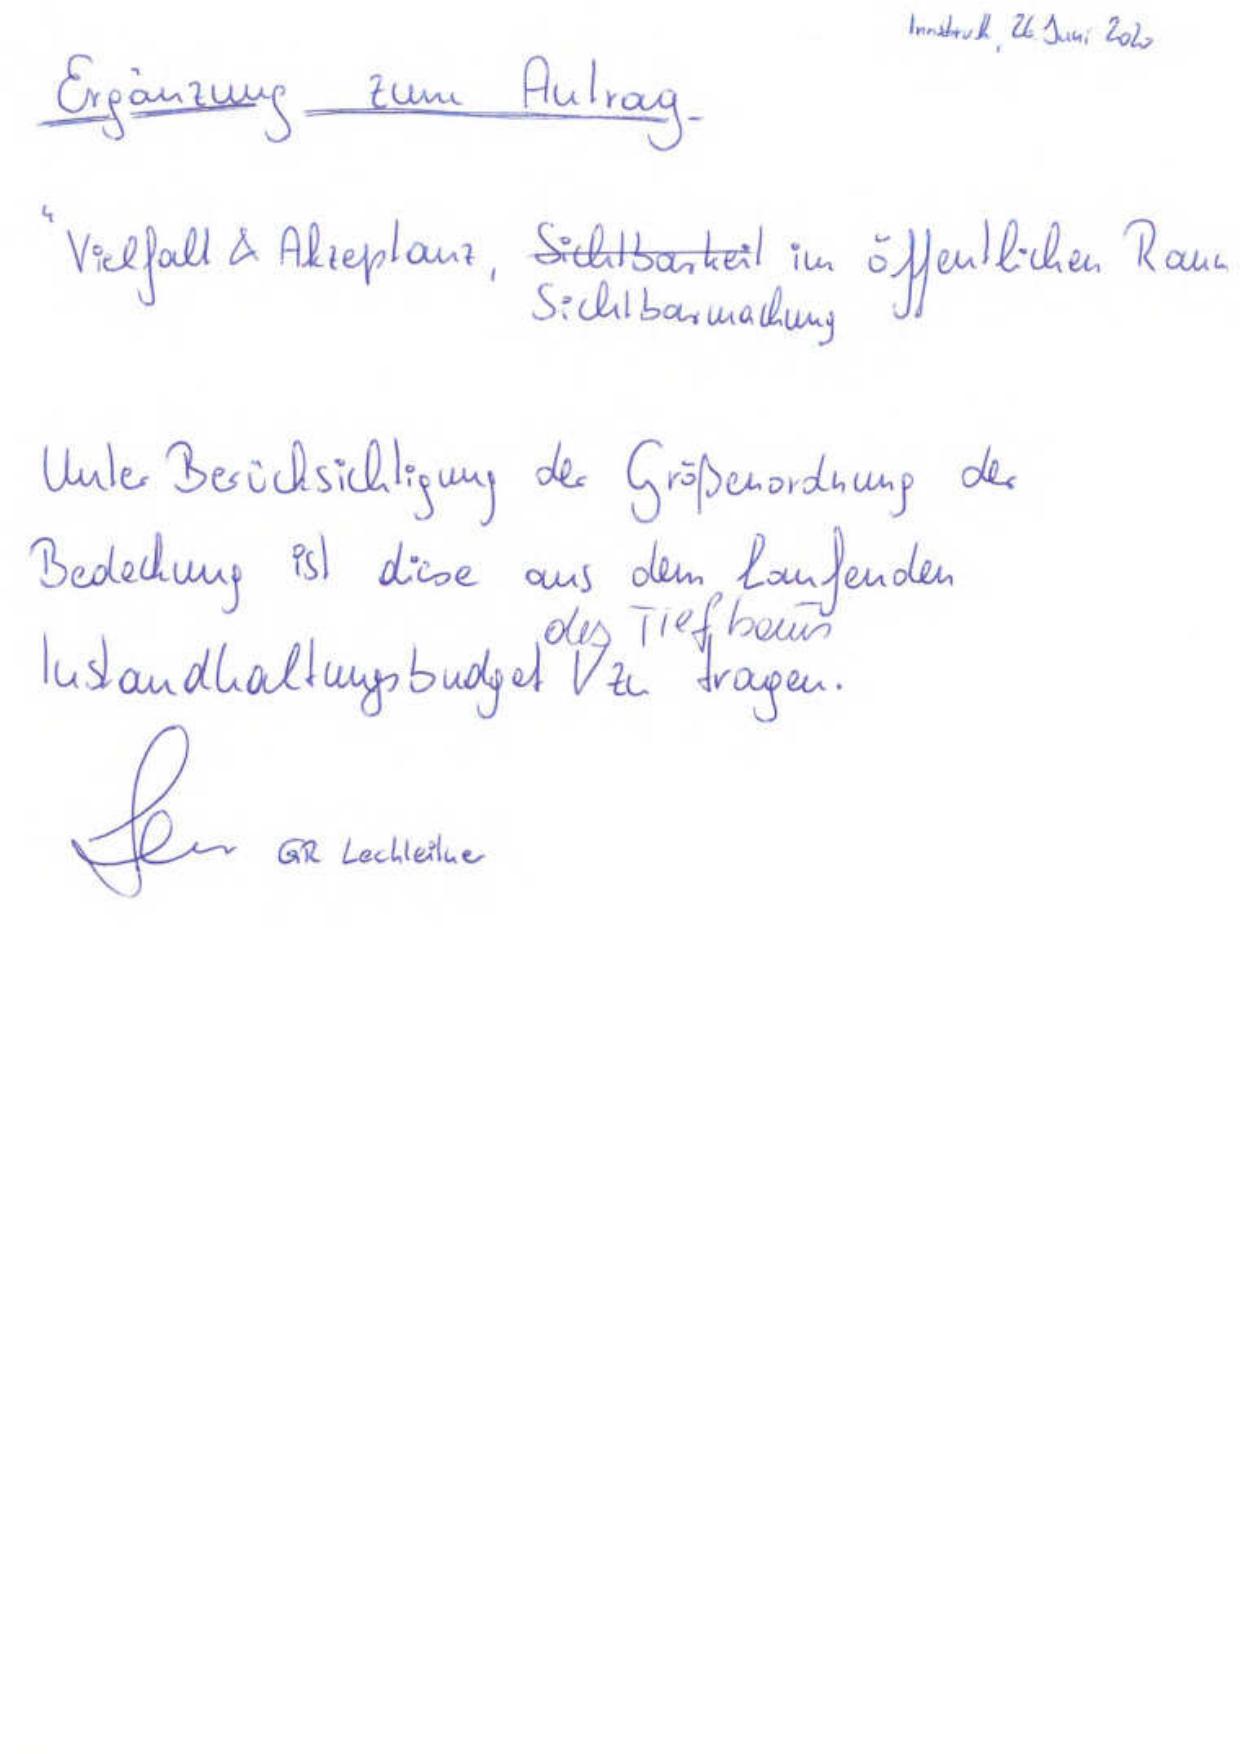 Innsbruck, 26 Juni 2020
Ergänzung zum Antrag
"Vielfalt & Akzeptanz, Sichtbarkeit im öffentlichen Raum
Sichtbarmachung
Unter Berücksichtigung der Größenordnung der
Bedeckung ist diese aus dem laufenden
des Tiefbaus
Instandhaltungsbudget zu tragen.
GR Lechleitner